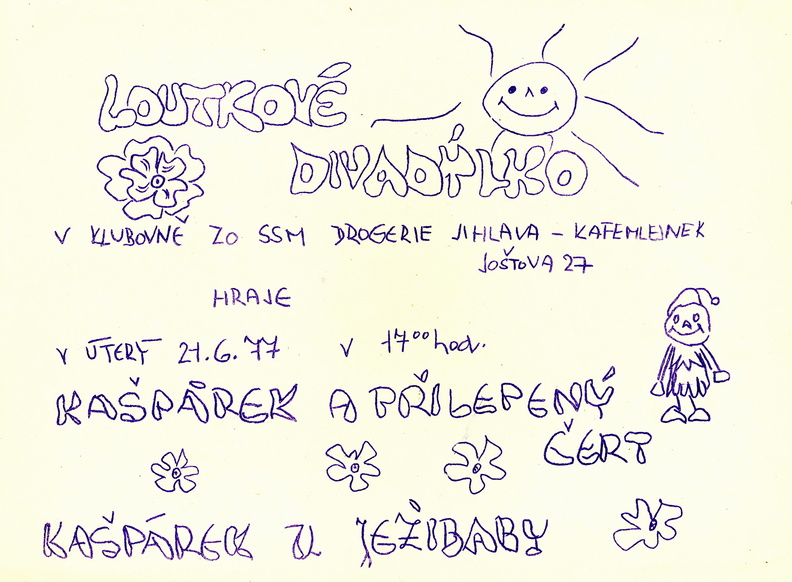 LOUTKOVÉ
DIVADÝLKO
V KLUBOVNĚ ZO SSM DROGERIE JIHLAVA – KAFEMLEJNEK
JOŠTOVA 27
HRAJE
V ÚTERÝ 21.6.77 V 17⁰⁰ hod.
KAŠPÁREK A PŘILEPENÝ
ČERT
KAŠPÁREK U JEŽIBABY